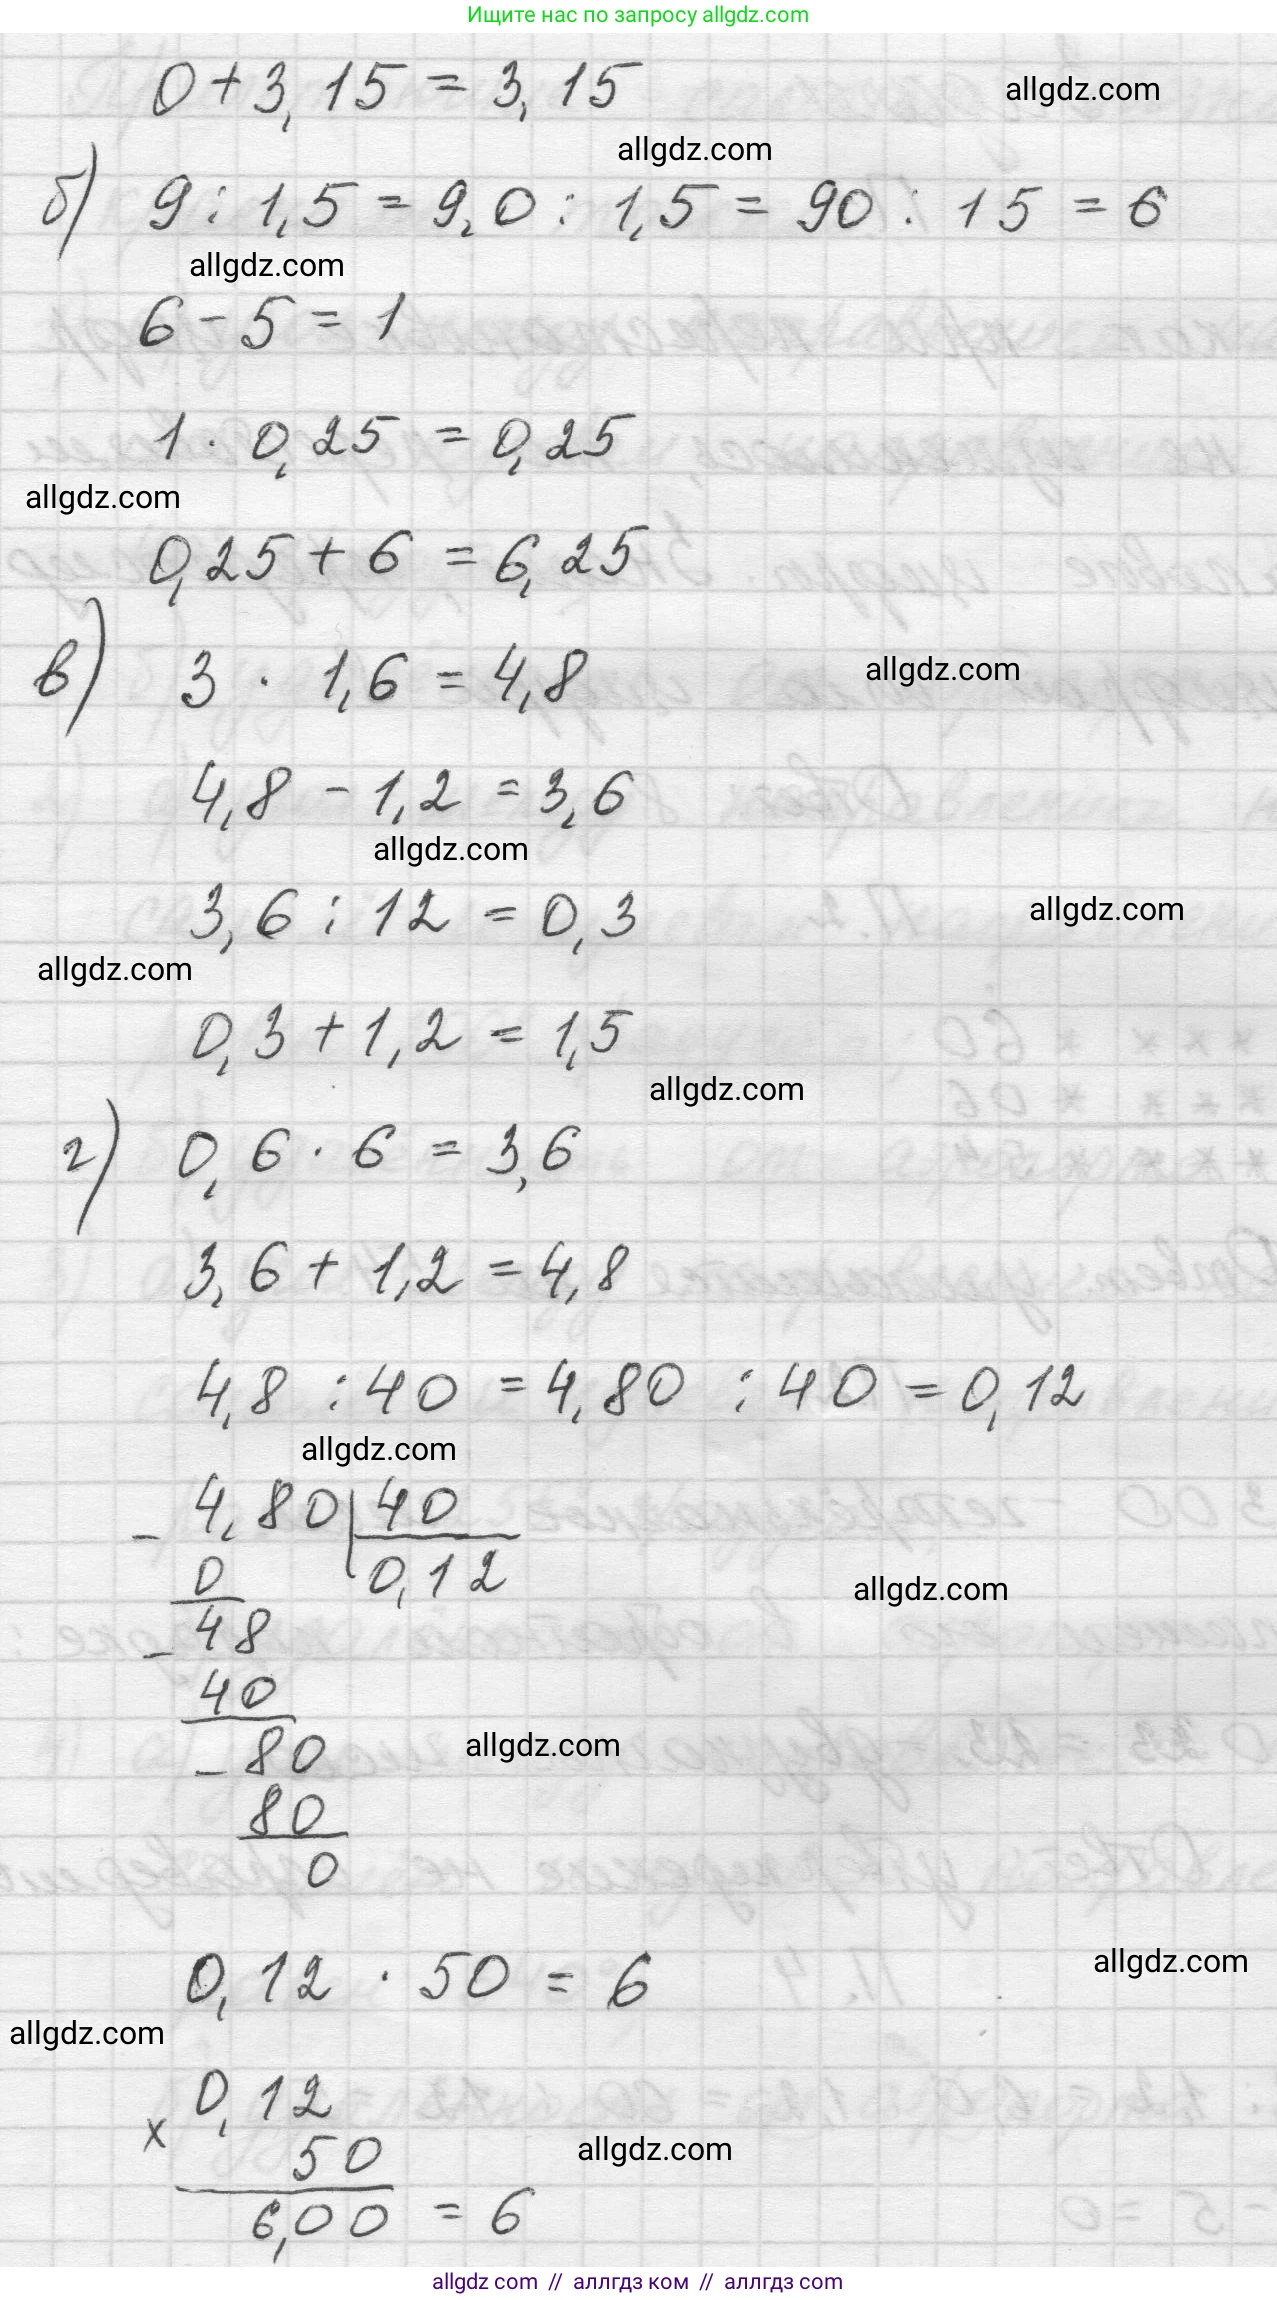 Ищите нас по запросу allgdz.com
0 + 3,15 = 3,15
allgdz.com
allgdz.com
б) 9 : 1,5 = 9,0 : 1,5 = 90 : 15 = 6
allgdz.com
6 - 5 = 1
1 · 0,25 = 0,25
allgdz.com
0,25 + 6 = 6,25
в) 3 · 1,6 = 4,8
allgdz.com
4,8 - 1,2 = 3,6
allgdz.com
3,6 : 12 = 0,3
allgdz.com
allgdz.com
0,3 + 1,2 = 1,5
allgdz.com
г) 0,6 · 6 = 3,6
3,6 + 1,2 = 4,8
4,8 : 40 = 4,80 : 40 = 0,12
allgdz.com
- 4,80 | 40
0 0,12
allgdz.com
- 48
40
- 80
allgdz.com
80
0
0,12 · 50 = 6
allgdz.com
allgdz.com
0,12
x
50
allgdz.com
6,00 = 6
allgdz com // аллгдз ком // аллгдз com